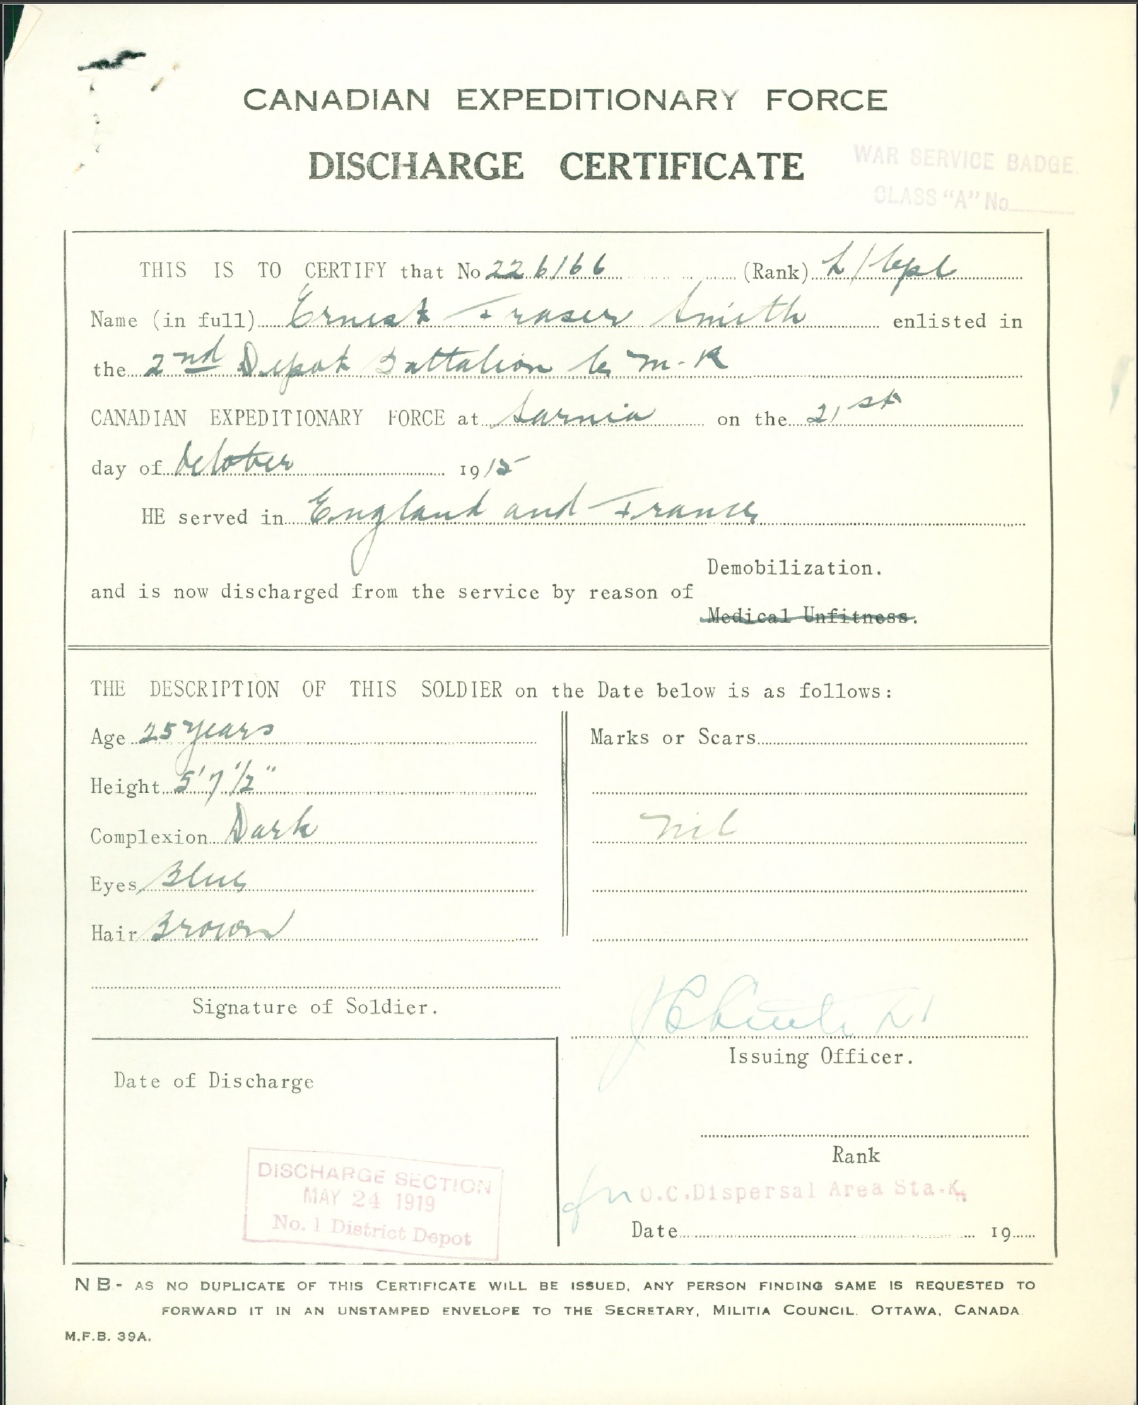 CANADIAN EXPEDITIONARY FORCE
DISCHARGE CERTIFICATE
WAR SERVICE BADGE.
CLASS "A" No
THIS IS TO CERTIFY that No 226166 (Rank) L/Cpl
Name (in full) Ernest Fraser Smith enlisted in
the 2nd Depot Battalion C. M. R
CANADIAN EXPEDITIONARY FORCE at Sarnia on the 21st
day of October 1915
HE served in England and France
Demobilization.
and is now discharged from the service by reason of
Medical Unfitness.
THE DESCRIPTION OF THIS SOLDIER on the Date below is as follows:
Age 25 years
Marks or Scars
Height 5' 7 1/2"
Complexion Dark
nil
Eyes Blue
Hair Brown
Signature of Soldier.
Issuing Officer.
Date of Discharge
Rank
DISCHARGE SECTION
MAY 24 1919
No. 1 District Depot
for O.C. Dispersal Area Sta. K.
Date 19
NB- AS NO DUPLICATE OF THIS CERTIFICATE WILL BE ISSUED, ANY PERSON FINDING SAME IS REQUESTED TO
FORWARD IT IN AN UNSTAMPED ENVELOPE TO THE SECRETARY, MILITIA COUNCIL. OTTAWA, CANADA
M.F.B. 39A.